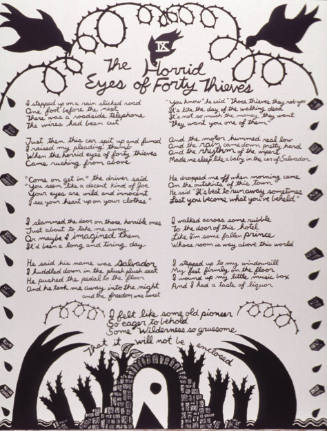 IX
The Horrid
Eyes of Forty Thieves
I stepped up on a rain slicked road
One foot before the next
There was a roadside telephone
The wires had been cut
Just then this car sped up and fumed
I raised my pleading thumb
When the horrid eyes of forty thieves
Came rushing from above
"Come on get in" the driver said
"You seem like a decent kind of fool
Your eyes are wild and innocent
I see your heart up on your clothes"
I slammed the door on those horrible ones
Just about to take me away
Or maybe I imagined them
It'd been a long and tiring day
He said his name was Salvador
I huddled down in the plush plush seat
He pushed the pedal to the floor
And he took me away into the night
and the freedom was sweet
"You know" he said "Those thieves they rob you
It's like the day of the walking dead
It's not so much the money they want
They want you one of them"
And the motor hummed real low
And the rain came down pretty hard
And the rhythm of the wipers
Made me sleep like a baby in the car of Salvador
He dropped me off when morning came
On the outskirts of this town
He said "It's best to run away sometimes
Lest you become what you've beheld"
I walked across some rubble
To the door of this hotel
Like I'm some fallen prince
Whose room is way above this world
I stepped up to my windowsill
My feet firmly on the floor
I wound up my little music box
And I had a taste of liquor
I felt like some old pioneer
So eager to behold
Some Wilderness so gruesome
That it will not be enclosed